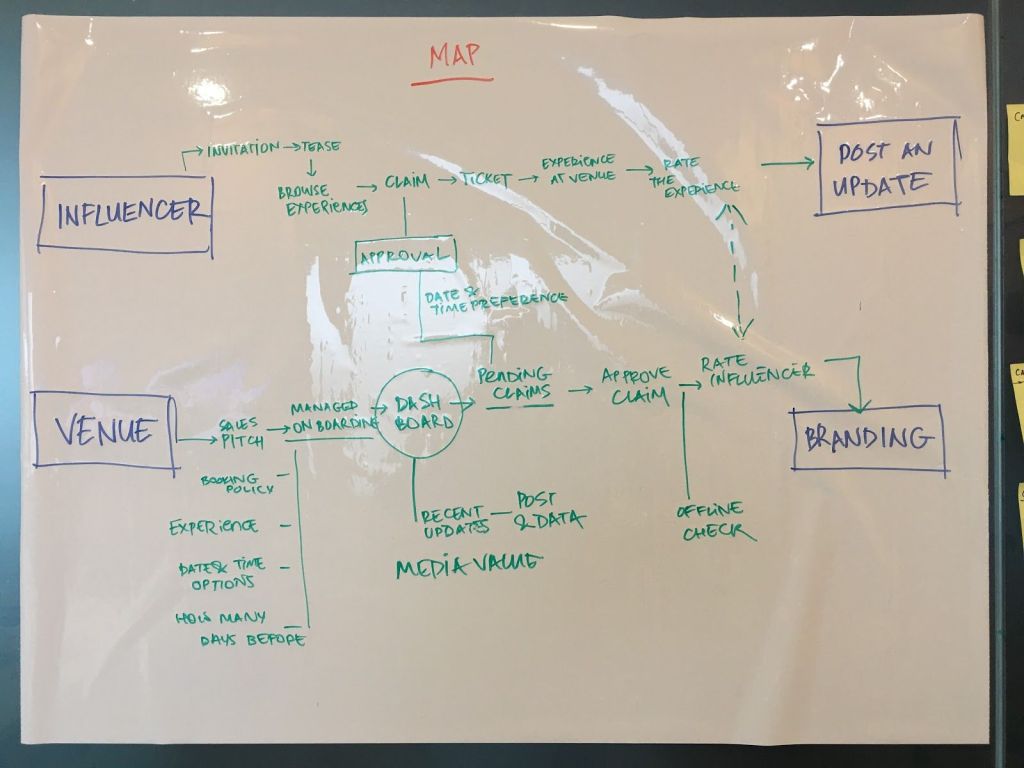 MAP
INVITATION → TEASE
INFLUENCER
BROWSE
EXPERIENCES
CLAIM
TICKET
EXPERIENCE
AT VENUE
RATE
THE
EXPERIENCE
POST AN
UPDATE
APPROVAL
DATE &
TIME PREFERENCE
VENUE
SALES
PITCH
MANAGED
ON BOARDING
DASH
BOARD
PENDING
CLAIMS
APPROVE
CLAIM
RATE
INFLUENCER
BRANDING
BOOKING
POLICY
EXPERIENCE
DATE & TIME
OPTIONS
HOW MANY
DAYS BEFORE
RECENT
UPDATES
POST
& DATA
MEDIA VALUE
OFFLINE
CHECK